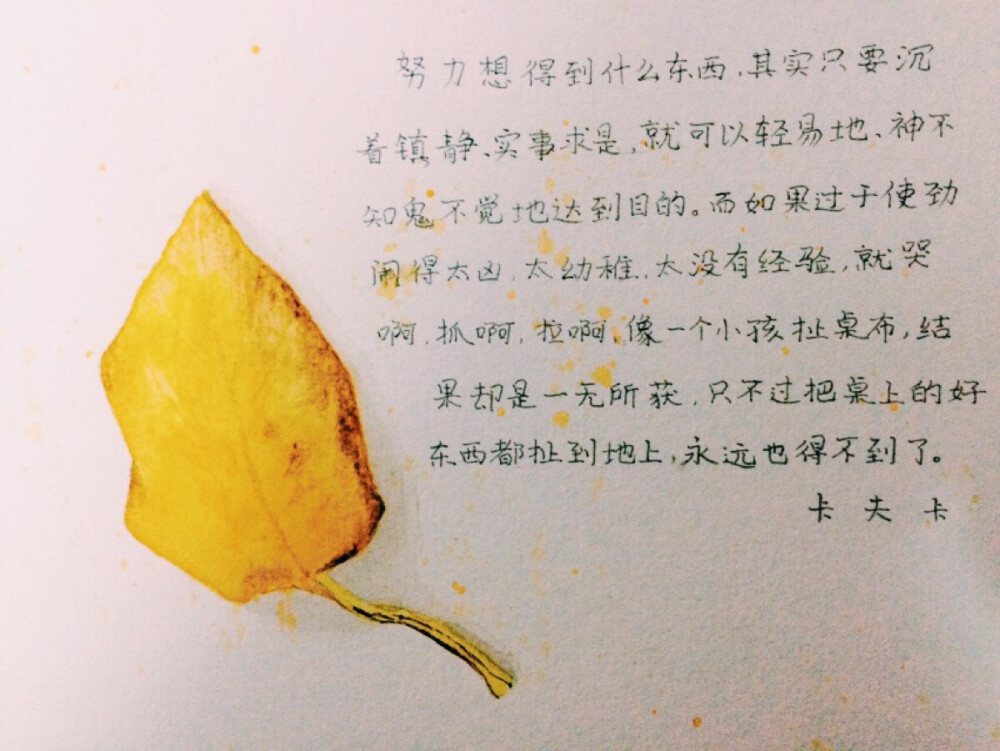 努力想得到什么东西,其实只要沉
着镇静、实事求是,就可以轻易地、神不
知鬼不觉地达到目的。而如果过于使劲
闹得太凶,太幼稚,太没有经验,就哭
啊,抓啊,拉啊,像一个小孩扯桌布,结
果却是一无所获,只不过把桌上的好
东西都扯到地上,永远也得不到了。
卡夫卡